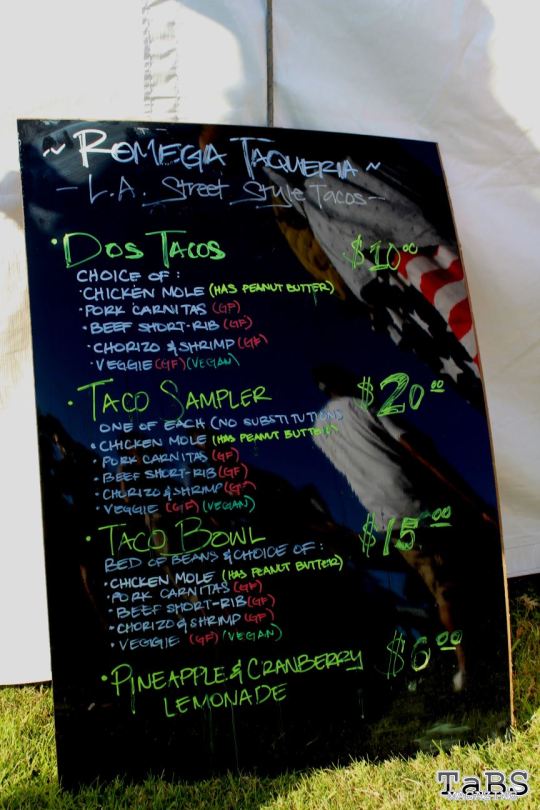 ~ ROMEGIA TAQUERIA ~
- L.A. Street Style Tacos -
· DOS TACOS $10.00
CHOICE OF :
· CHICKEN MOLE (HAS PEANUT BUTTER)
· PORK CARNITAS (GF)
· BEEF SHORT-RIB (GF)
· CHORIZO & SHRIMP (GF)
· VEGGIE (GF) (VEGAN)
· TACO SAMPLER $20.00
ONE OF EACH (NO SUBSTITUTIONS
· CHICKEN MOLE (HAS PEANUT BUTTER)
· PORK CARNITAS (GF)
· BEEF SHORT-RIB (GF)
· CHORIZO & SHRIMP (GF)
· VEGGIE (GF) (VEGAN)
· TACO BOWL $15.00
BED OF BEANS & CHOICE OF :
· CHICKEN MOLE (HAS PEANUT BUTTER)
· PORK CARNITAS (GF)
· BEEF SHORT-RIB (GF)
· CHORIZO & SHRIMP (GF)
· VEGGIE (GF) (VEGAN)
· PINEAPPLE & CRANBERRY $6.00
LEMONADE
TaBS